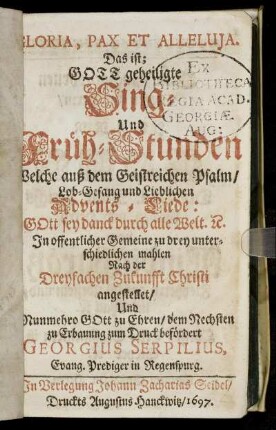 GLORIA, PAX ET ALLELUJA.
Das ist;
GOTT geheiligte
Sing-
Und
Früh-Stunden
Welche auß dem Geistreichen Psalm/
Lob-Gesang und Lieblichen
Advents-Liede:
GOtt sey danck durch alle Welt. ꝛc.
In offentlicher Gemeine zu drey unter-
schiedlichen mahlen
Nach der
Dreyfachen Zukunfft Christi
angestellet/
Und
Nunmehro GOtt zu Ehren/ dem Nechsten
zu Erbauung zum Druck befördert
GEORGIUS SERPILIUS,
Evang. Prediger in Regenspurg.
In Verlegung Johann Zacharias Seidel/
Druckts Augustus Hanckwitz/ 1697.
Ex
BIBLIOTHECA
REGIA ACAD.
GEORGIÆ
AUG: